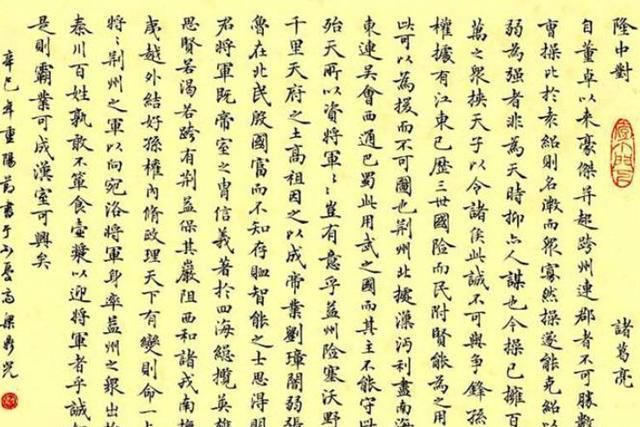 隆中對 諸葛亮
自董卓以来豪傑并起跨州連郡者不可勝數
曹操比於袁紹則名微而眾寡然操遂能克紹以
弱為强者非為天時抑亦人謀也今操已擁百
萬之眾挾天子以令諸侯此誠不可與爭鋒孫
權據有江東已歷三世國險而民附賢能為之用
此可以為援而不可圖也荆州北據漢沔利盡南海
東連吴會西通巴蜀此用武之國而其主不能守
殆天所以資將軍〻豈有意乎益州險塞沃野
千里天府之土高祖因之以成帝業劉璋闇弱張
魯在北民殷國富而不知存恤智能之士思得明
君將軍既帝室之胄信義著於四海總攬英雄
思賢若渴若跨有荆益保其巖阻西和諸戎南撫
夷越外結好孫權內脩政理天下有變則命一上
將〻荆州之軍以向宛洛將軍身率益州之眾出於
秦川百姓孰敢不簞食壺漿以迎將軍者乎誠如
是則霸業可成漢室可興矣
辛巳年重陽節書于